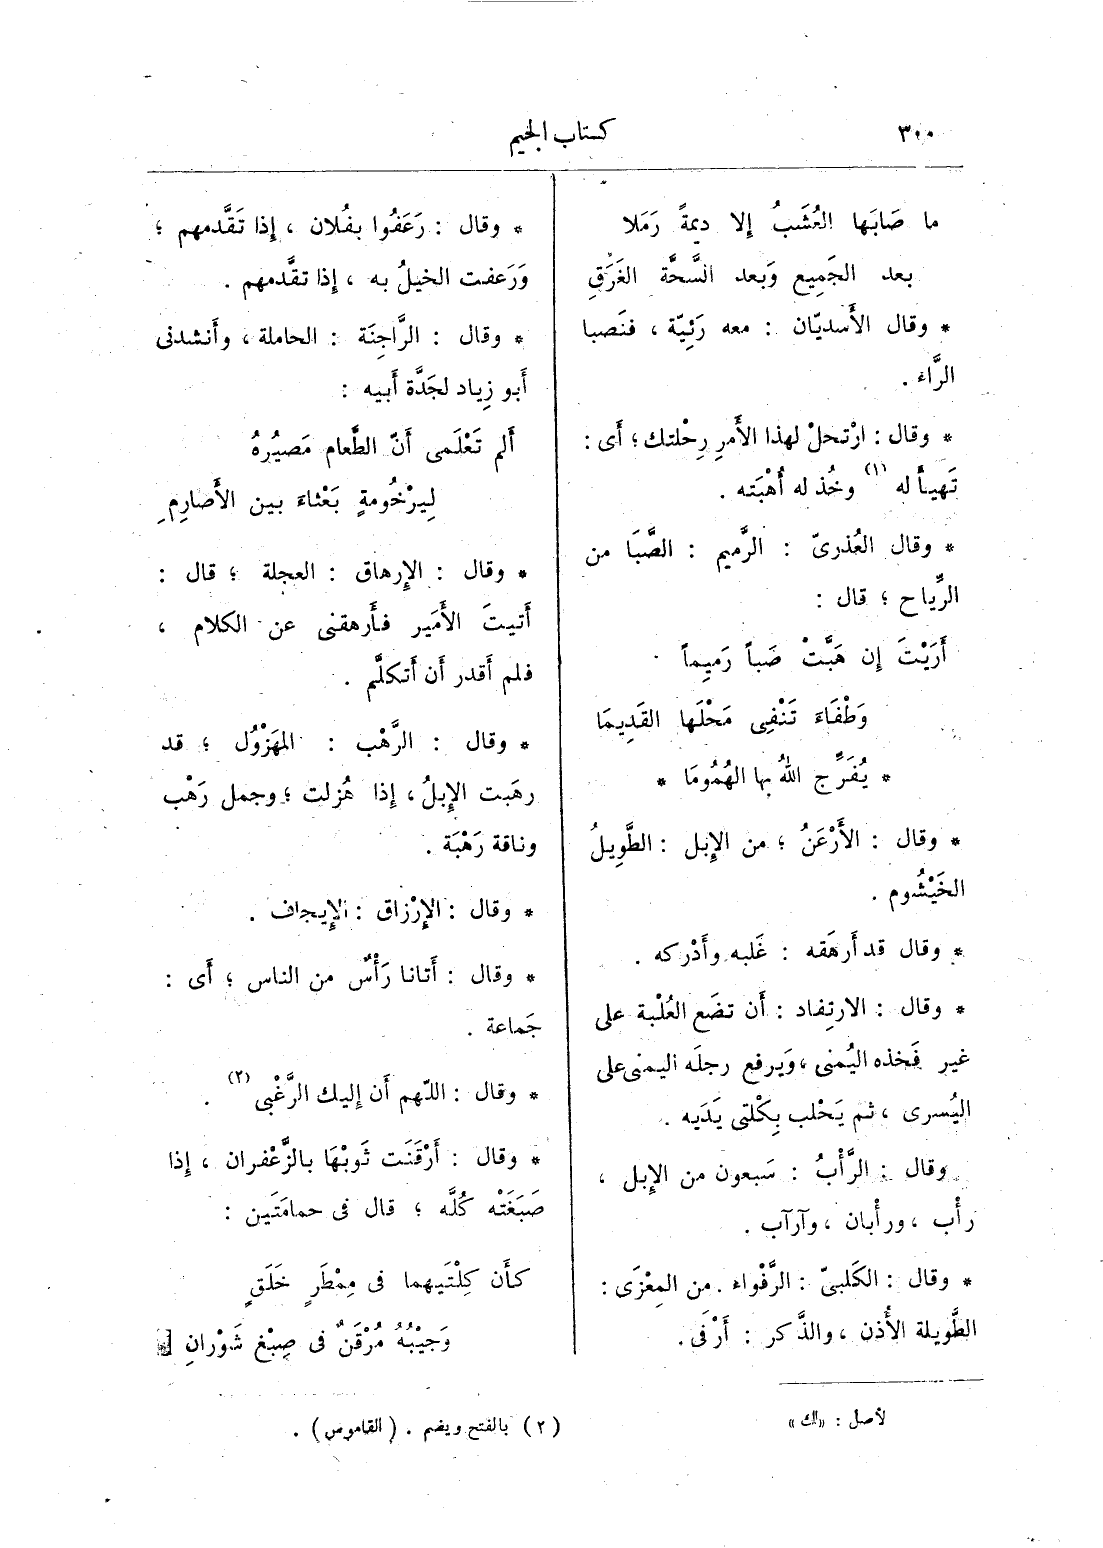 ٣٠٠
كتاب الجيم
ما صَابَها العُشَبُ إلا ديمةً رَمَلا
بعد الجَمِيع وَبعد السَّحَّة الغَرَقِ
* وقال الأَسديّان : معه رَئِيّة ، فنَصبا
الرَّاء .
* وقال : ارْتحلْ لهذا الأَمرِ رِحْلتك ؛ أَى :
تَهيأْ له (١) وخُذ له أُهْبَته .
* وقال العُذرىّ : الرَّميم : الصَّبَا من
الرِّياح ؛ قال :
أَرَيْتَ إن هَبَّتْ صَباً رَمِيماً
وَطْفَاءَ تَنْفِى مَحْلَها القَدِيمَا
* يُفَرِّج اللهُ بها الهُمُومَا *
* وقال : الأَرْعَنُ ؛ من الإِبل : الطَّوِيلُ
الخَيْشُوم .
* وقال قد أَرهَقه : غَلبه وأَدْركه .
* وقال : الارتِفاد : أَن تضَع العُلْبة على
غير فَخذه اليُمنى ، وَيرفع رجلَه اليمنى على
اليُسرى ، ثم يَحْلب بِكْلتى يَدَيه .
وقال : الرَّأْبُ : سَبعون من الإِبل ،
رأْب ، ورأْبان ، وآرآب .
* وقال : الكَلبىّ : الرَّفْواء . من المِعْزَى :
الطَّويلة الأُذن ، والذَّكر : أَرْفَى .
* وقال : رَعَفُوا بفُلان ، إِذا تَقَّدمهم ؛
وَرَعفت الخيلُ به ، إِذا تقَّدمهم .
* وقال : الرَّاجِنَة : الحاملة ، وأَنشدنى
أَبو زِياد لجَدَّة أَبيه :
أَلم تَعْلَمى أَنّ الطَّعام مَصيُرهُ
لِيرْخُومةٍ بَعْثاءَ بين الأَصارِمِ
* وقال : الإِرهاق : العجلة ؛ قال :
أَتيتَ الأَمَير فأَرهقنى عن الكلام ،
فلم أَقدر أَن أَتكلَّم .
* وقال : الرَّهْب : المَهزُول ؛ قد
رهَبت الإِبلُ ، إِذا هُزلت ؛ وجمل رَهْب
وناقة رَهْبَة .
* وقال : الإِرْزاق : الإِيجاف .
* وقال : أَتانا رَأْسٌ من الناس ؛ أَى :
جَماعة .
* وقال : اللّهم أَن إِليك الرَّغْبى (٢) .
* وقال : أَرْقَنَت ثَوبْهَا بالزَّعْفران ، إِذا
صَبَغَتْه كُلَّه ؛ قال فى حمامَتَين :
كأَن كِلْتَيهما فى مِمْطَرٍ خَلَقٍ
وَجيْبُهُ مُرْقَنٌ فى صِبْغ شَوْرانِ
لأصل : «لك»
(٢) بالفتح ويضم . (القاموس) .